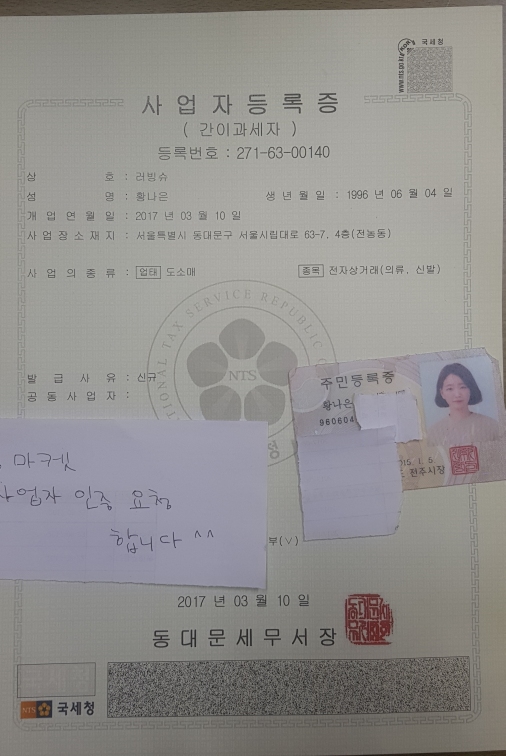 국세청
www.nts.go.kr
사업자등록증
( 간이과세자 )
등록번호 : 271-63-00140
상 호 : 러빙슈
성 명 : 황나은 생 년 월 일 : 1996 년 06 월 04 일
개 업 연 월 일 : 2017 년 03 월 10 일
사업장소재지 : 서울특별시 동대문구 서울시립대로 63-7, 4층(전농동)
사 업 의 종 류 : 업태 도소매 종목 전자상거래(의류, 신발)
NATIONAL TAX SERVICE REPUBLIC
NTS
발 급 사 유 : 신규
공 동 사 업 자 :
주민등록증
황나은
960604
15. 1. 5.
전주시장
마켓
사업자 인증 요청
합니다 ^^
부(∨)
2017 년 03 월 10 일
동대문세무서장
NTS 국세청